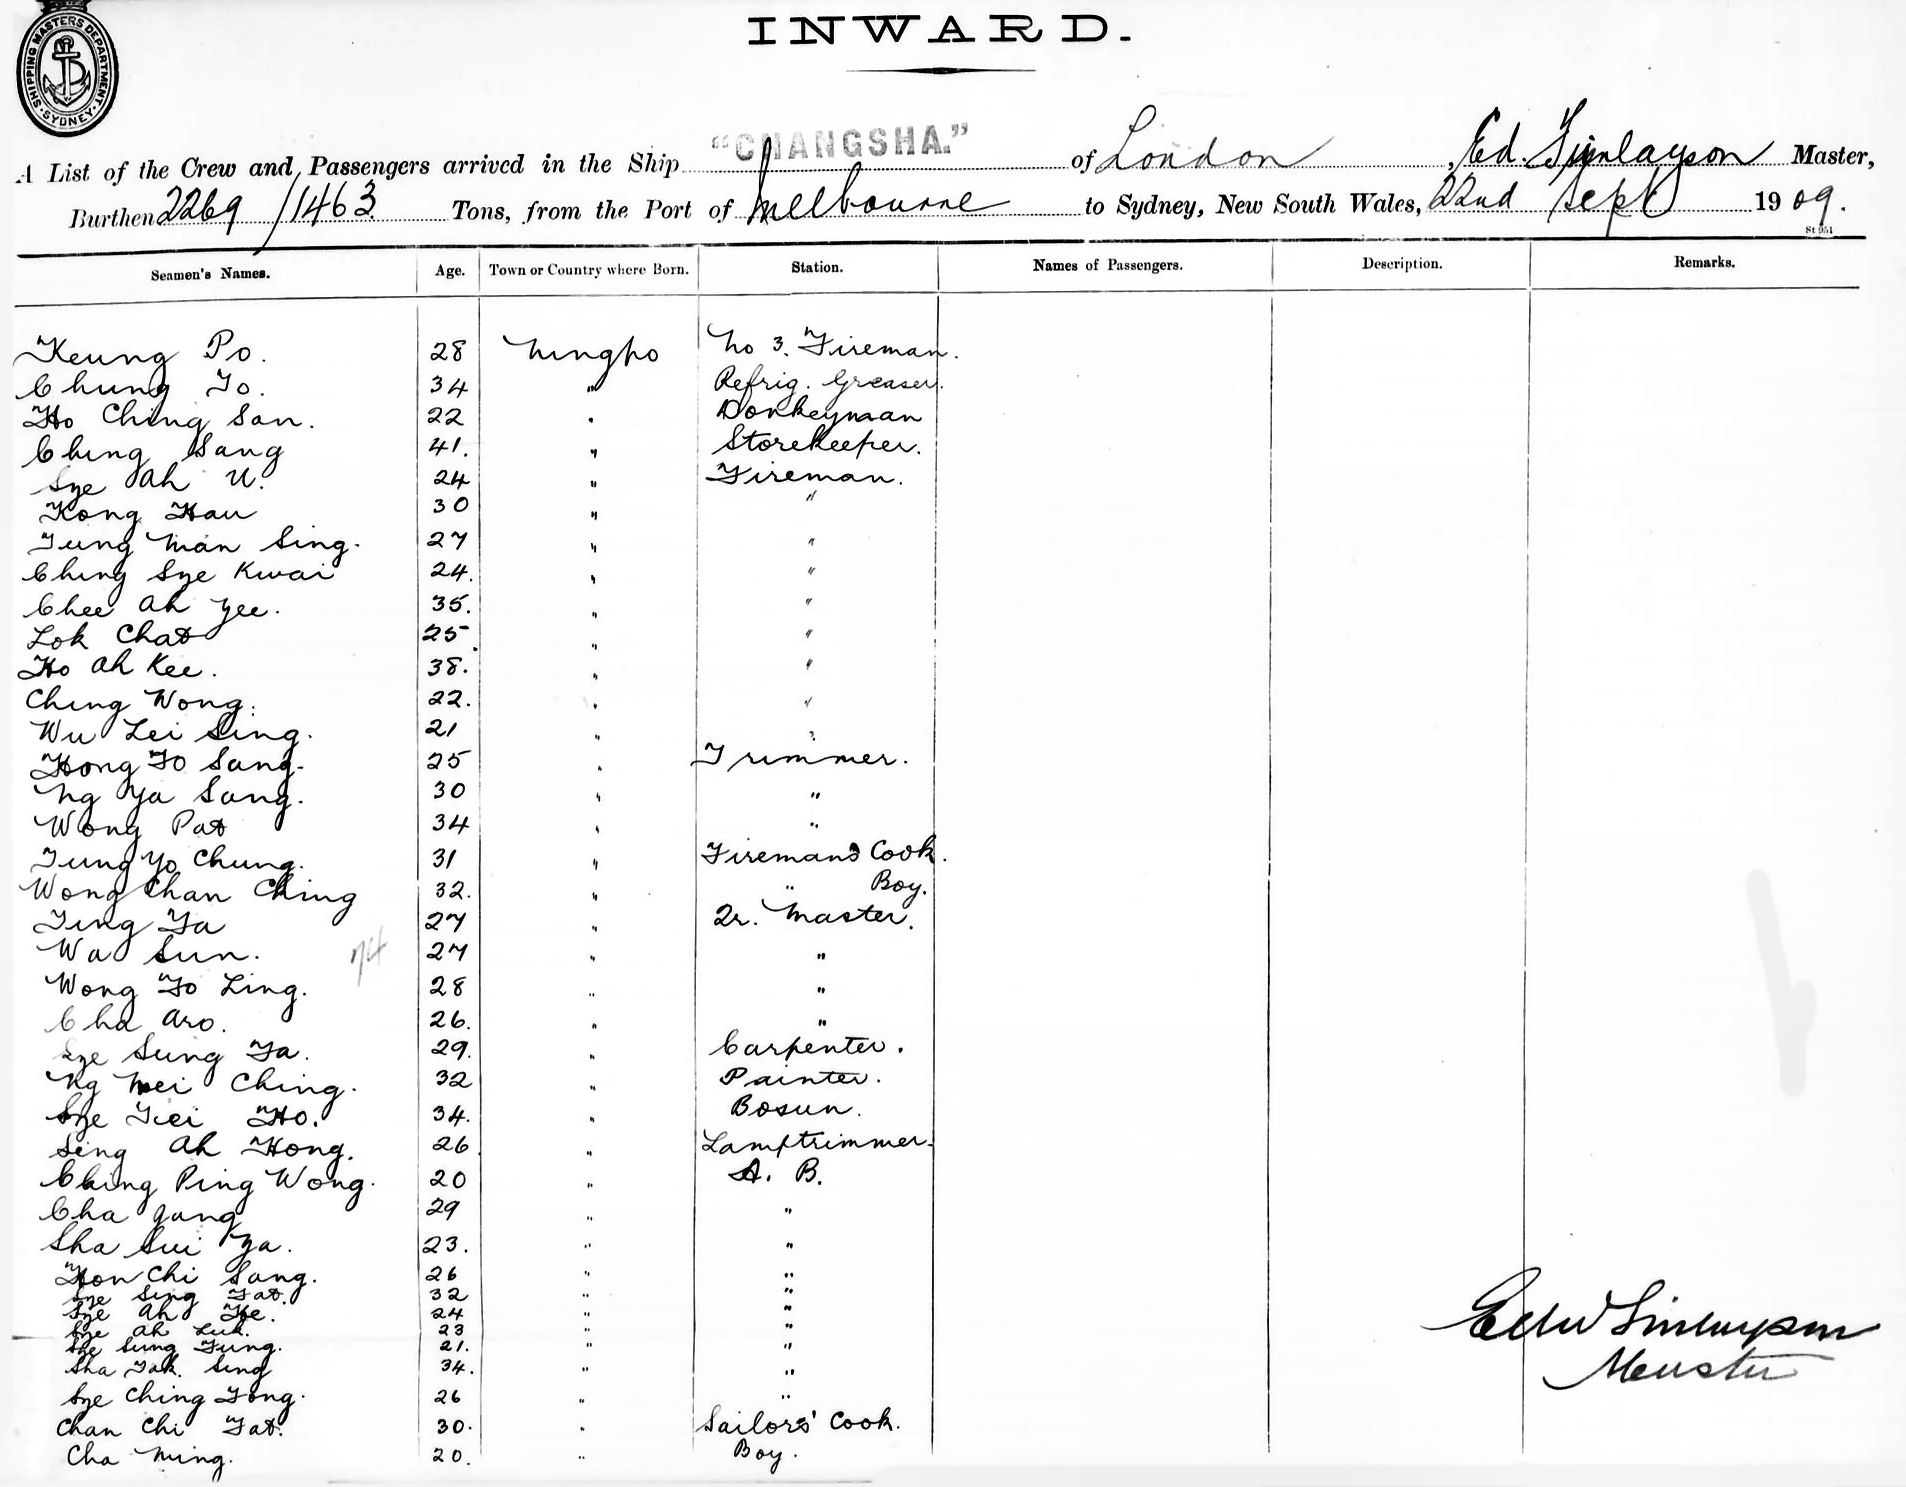 SHIPPING MASTERS DEPARTMENT. SYDNEY.
INWARD.
A List of the Crew and Passengers arrived in the Ship "CHANGSHA." of London, Ed. Finlayson Master,
Burthen 2269/1463 Tons, from the Port of Melbourne to Sydney, New South Wales, 22nd Sept 1909.
Seamen's Names. Age. Town or Country where Born. Station. Names of Passengers. Description. Remarks.
Keung Po. 28 Ningpo No 3. Fireman.
Chung Fo. 34 " Refrig. Greaser.
Ho Ching San. 22 " Donkeyman
Ching Sang 41. " Storekeeper.
Sye Ah U. 24 " Fireman.
Kong Hau 30 " "
Tung Man Sing. 27 " "
Ching Sye Kwai 24. " "
Chee Ah Yee. 35. " "
Lok Chat 25 " "
Ho Ah Kee. 38. " "
Ching Wong. 22. " "
Wu Lei Sing. 21 " "
Hong Fo Sang. 25 " Trimmer.
Ng Ya Sang. 30 " "
Wong Pat 34 " "
Tung Yo Chung. 31 " Firemans Cook.
Wong Chan Ching 32. " " Boy.
Ting Fa 27 " Qr. Master.
Wa Sun. 27 " "
Wong Fo Ling. 28 " "
Cha Aro. 26. " "
Sye Sung Fa. 29. " Carpenter.
Ng Mei Ching. 32 " Painter.
Sye Fei Ho. 34. " Bosun.
Sing Ah Hong. 26 " Lamptrimmer.
Ching Ping Wong. 20 " A. B.
Cha Gang 29 " "
Sha Sui Ya. 23. " "
Hon Chi Sang. 26 " "
Sye Sing Fat. 32 " "
Sye Ah He. 24 " "
Sye Ah Luk. 23 " "
She Sung Fung. 21. " "
Sha Fak Sing 34. " "
Sye Ching Fong. 26 " "
Chan Chi Fat. 30. " Sailors' Cook.
Cha Ming. 20. " Boy.
Edw Finlayson
Master